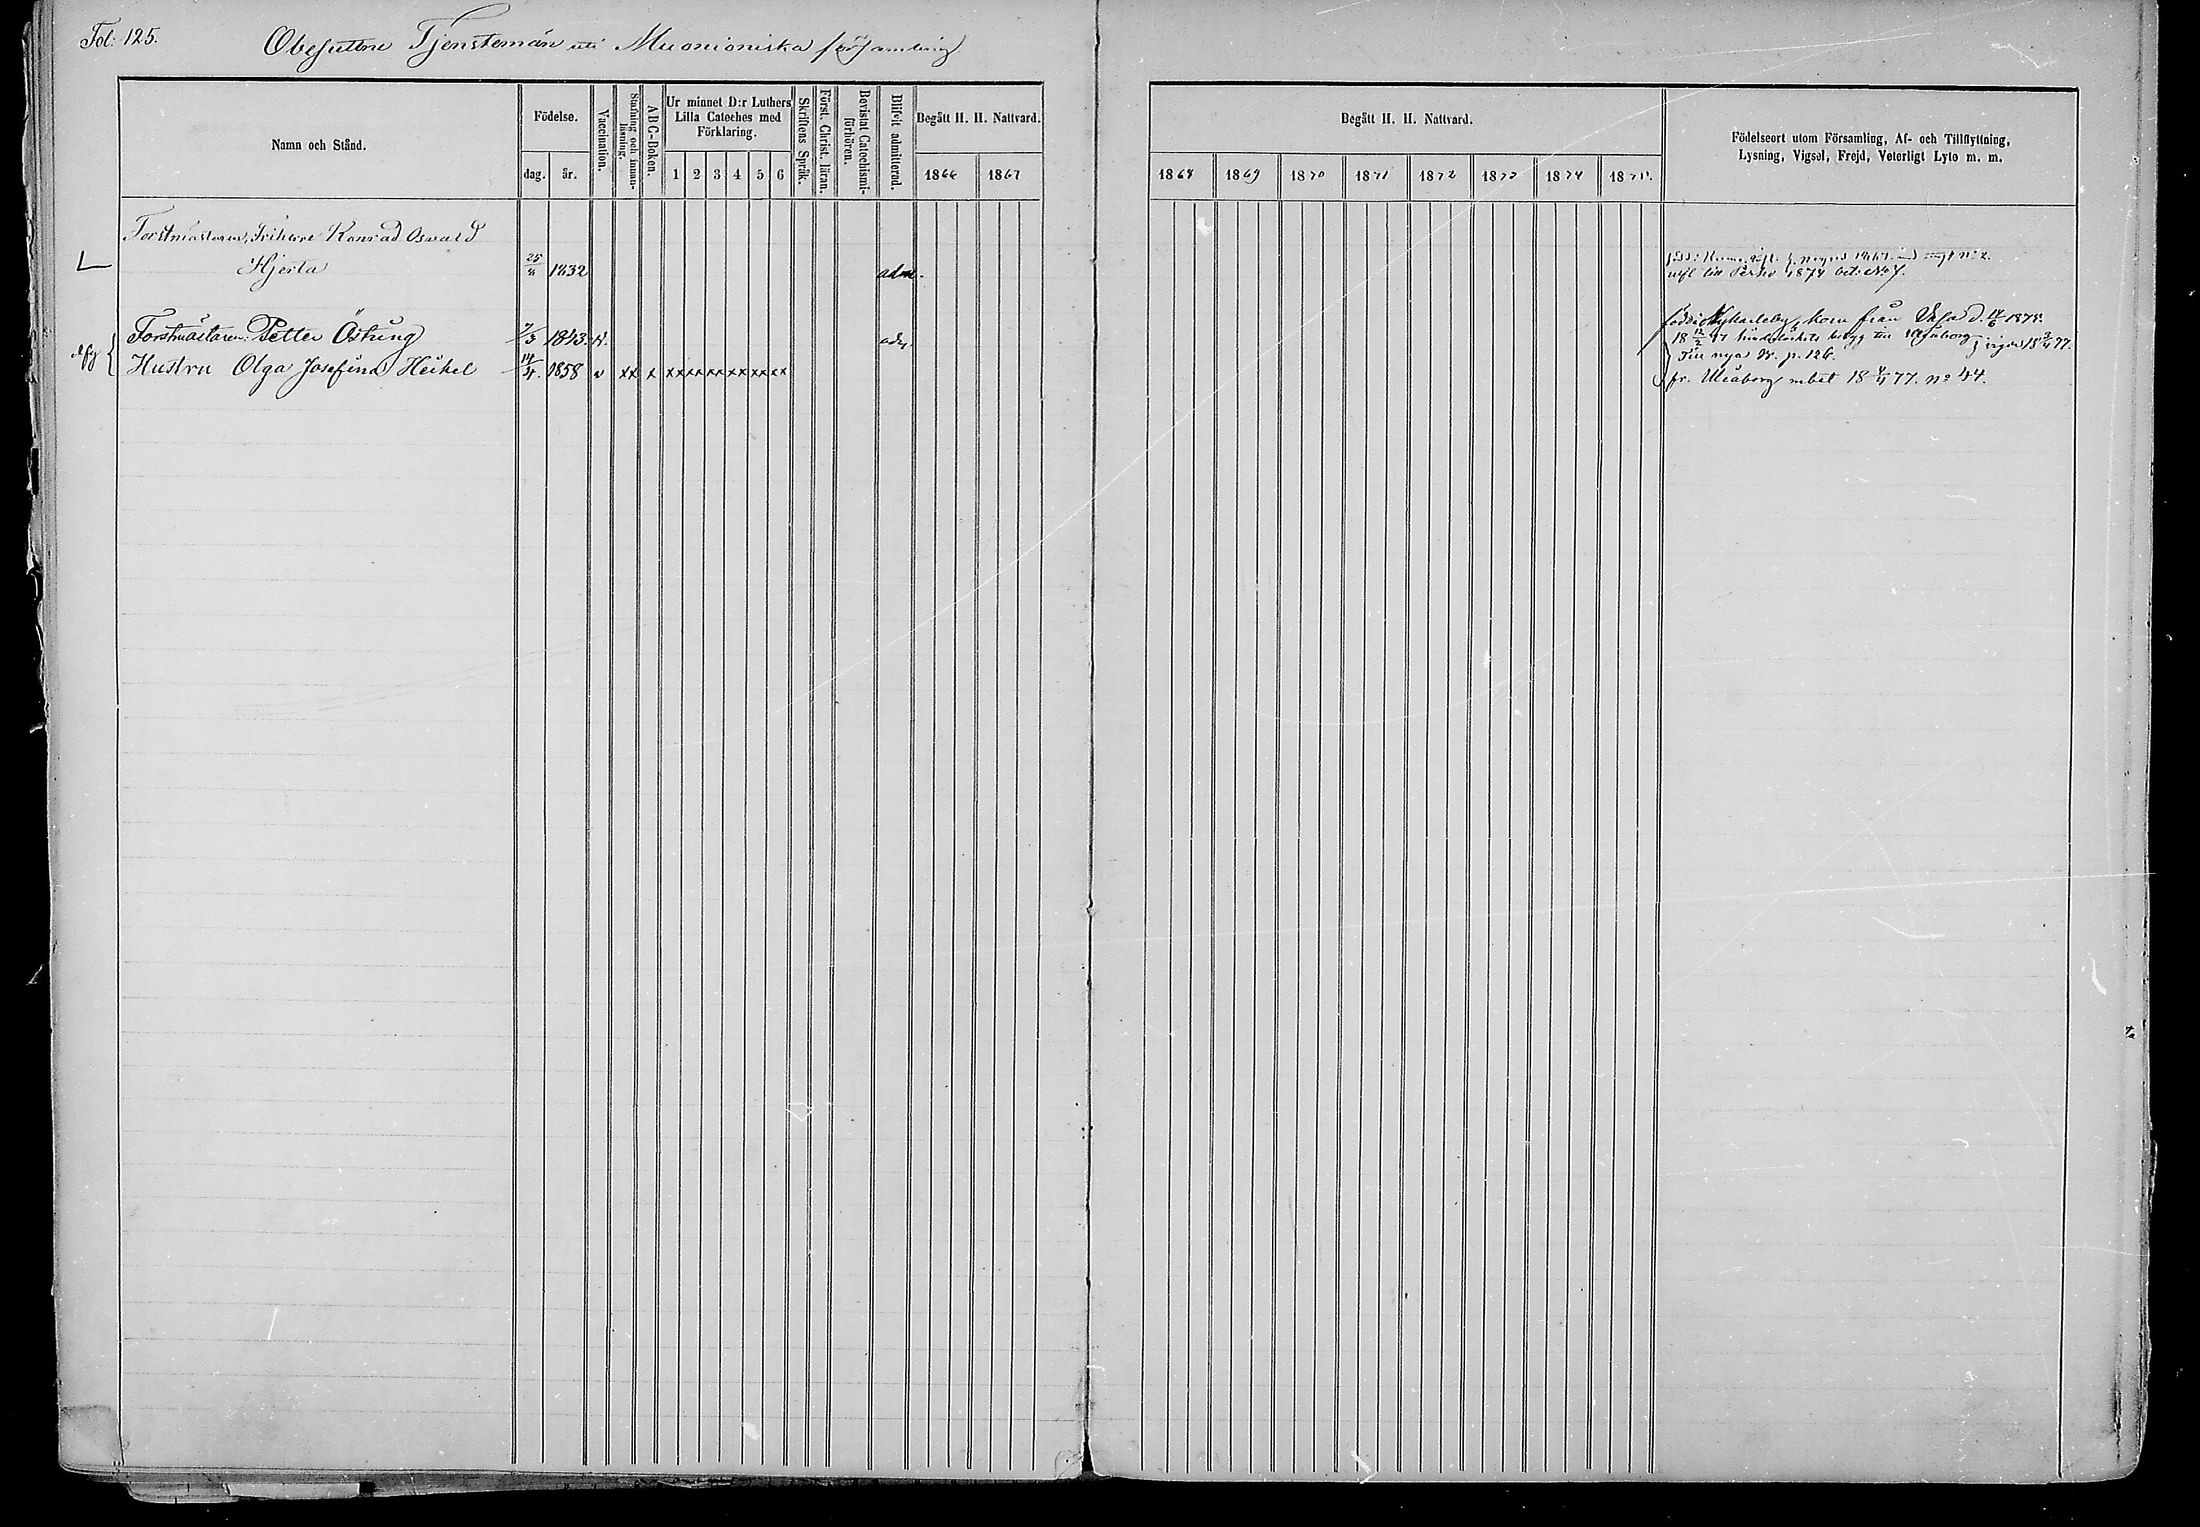 Fol: 125.
Obesuttne Tjenstemän uti Muonioniska församling
Namn och Stånd.
Födelse.
dag. år.
Vaccination.
Stafning och innanläsning.
ABC-Boken.
Ur minnet D:r Luthers
Lilla Cateches med
Förklaring.
1 2 3 4 5 6
Skriftens Språk.
Först. Christ. läran.
Bevistat Catechismi-förhören.
Blifvit admitterad.
Begått H. H. Nattvard.
1866 1867
Begått H. H. Nattvard.
1868 1869 1870 1871 1872 1873 1874 1875
Födelseort utom Församling, Af- och Tillflyttning,
Lysning, Vigsel, Frejd, Veterligt Lyte m. m.
Forstmästaren, Friherre Konrad Oswald
Hjerta 1832 adm.
1867
till 1874
Forstmästaren Petter 7/3 1843.
född i Nykarleby, kom från Vasa d. 1875.
till Uleåborg
nya p. 126.
Hustru Olga Josefina Heikel 14/4. 1858 v xx x xx xx xx xx xx xx
fr. Uleåborg 18 77. no 44.